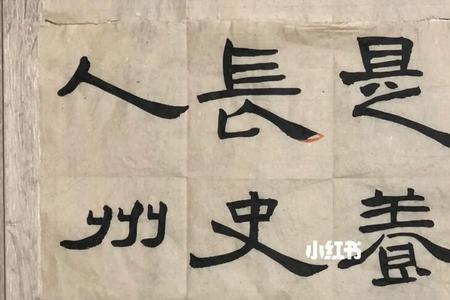 是養
長史
人州
小红书